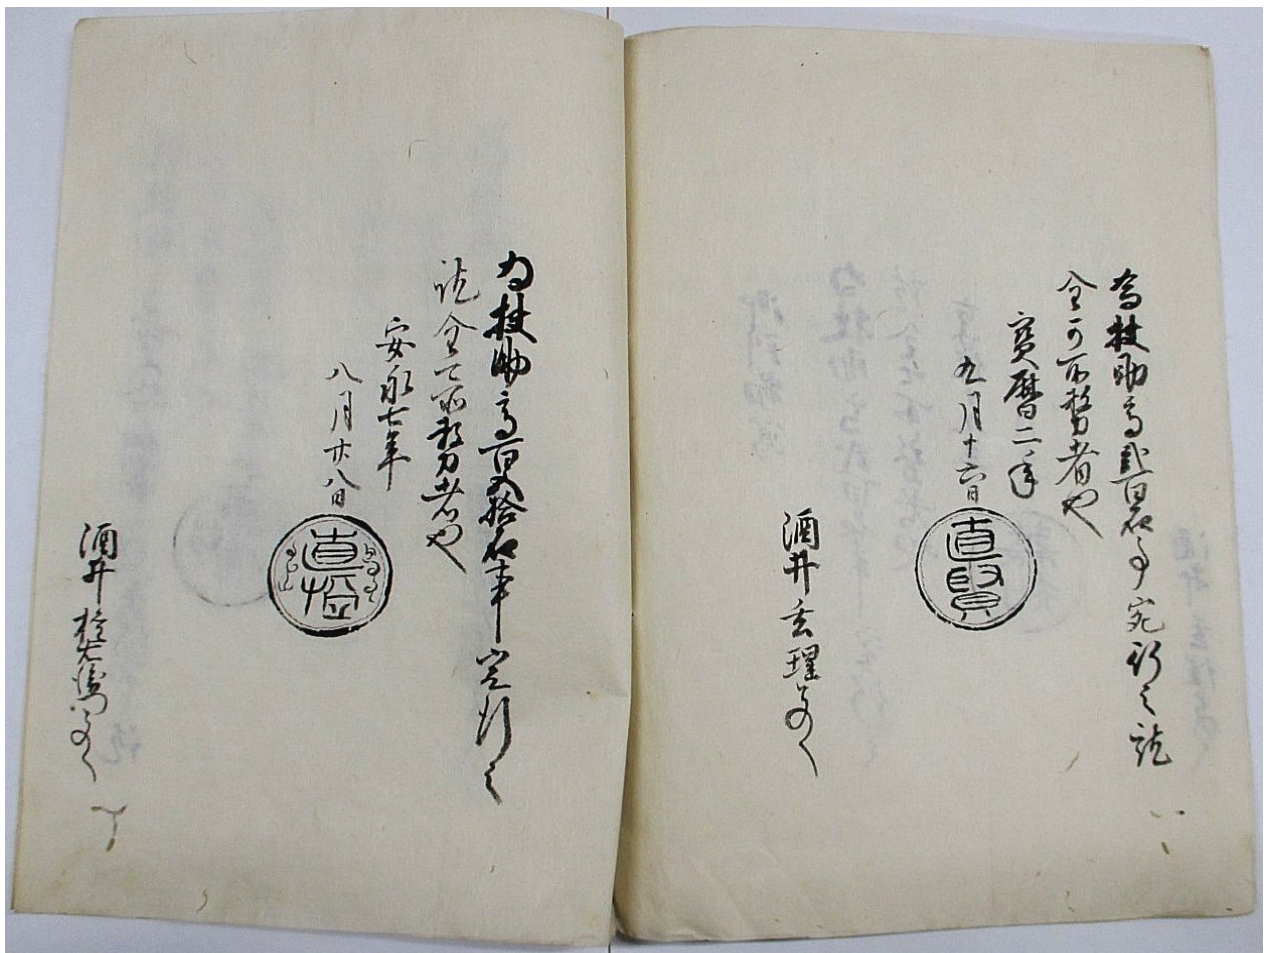 為扶助高弐百石事宛行之訖
全可所務者也
寳暦二年
九月十六日
直賢
酒井玄理とのへ
為扶助高百五拾石事宛行之
訖全可所務者也
安永七年
八月廿八日
直
酒井権左衛門とのへ